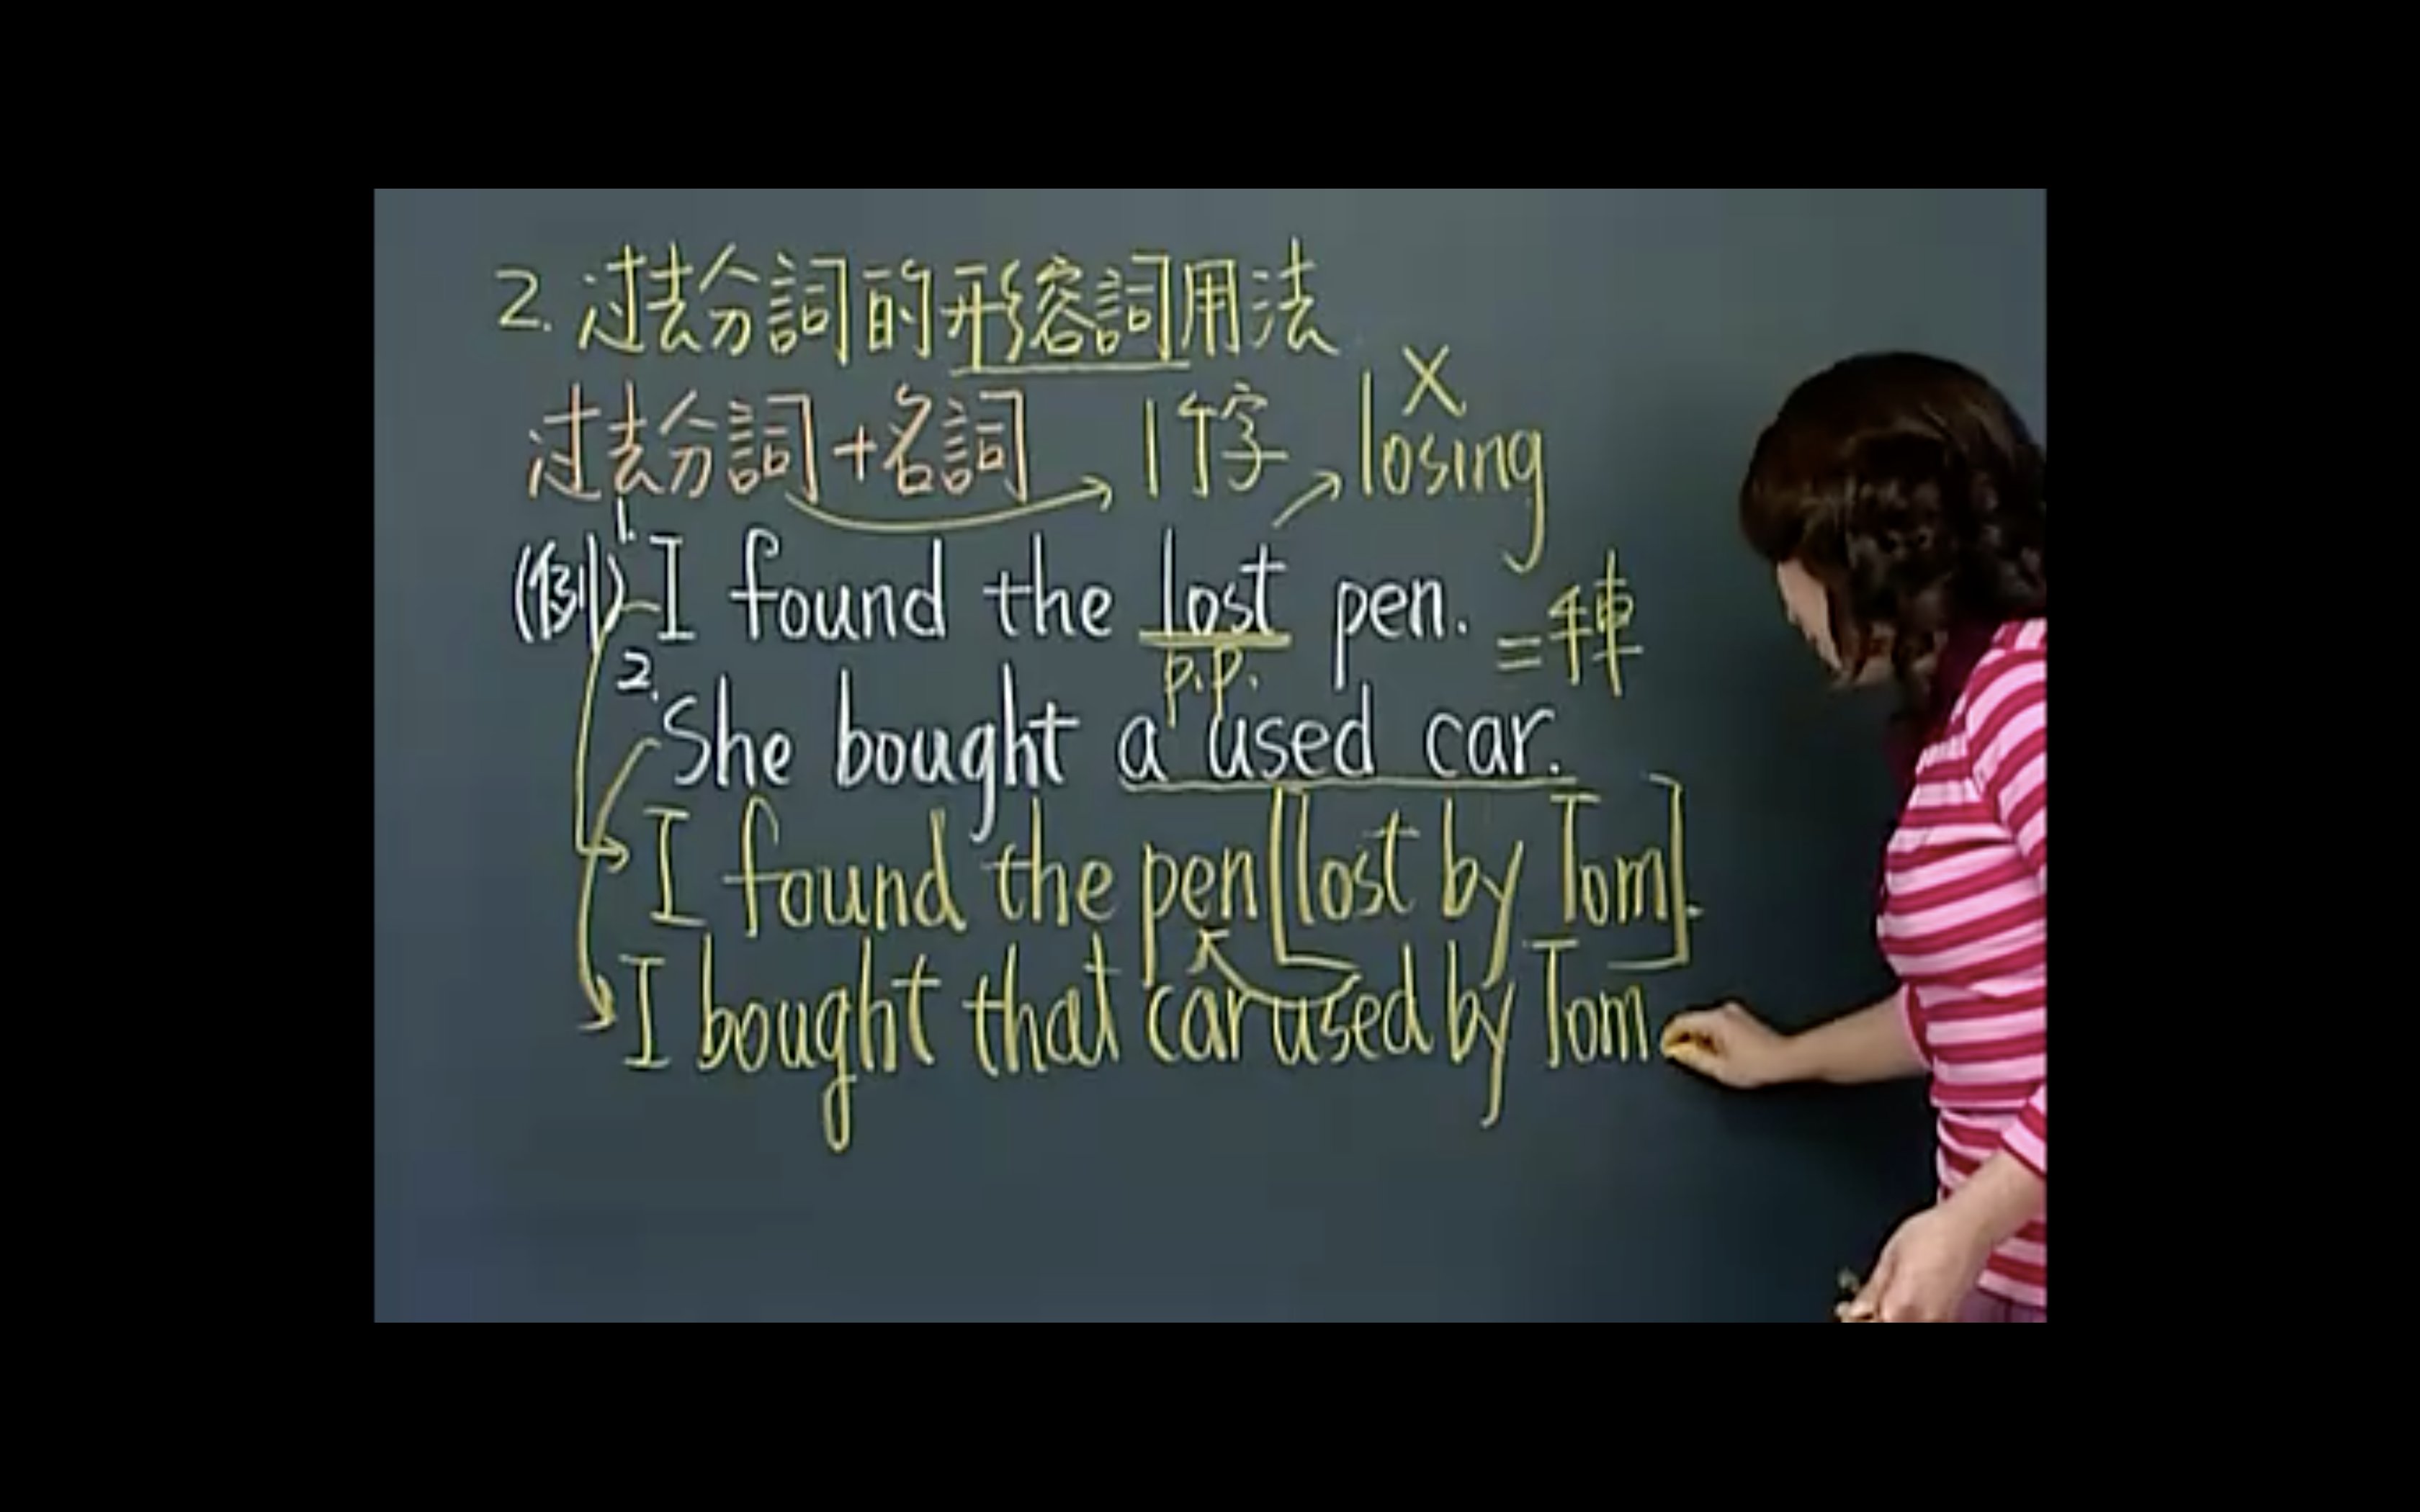 2. 过去分詞的形容詞用法
过去分詞+名詞 1个字 losing X
(例) 1. I found the lost pen.
p.p. =手車
2. She bought a used car.
I found the pen [lost by Tom].
I bought that car used by Tom